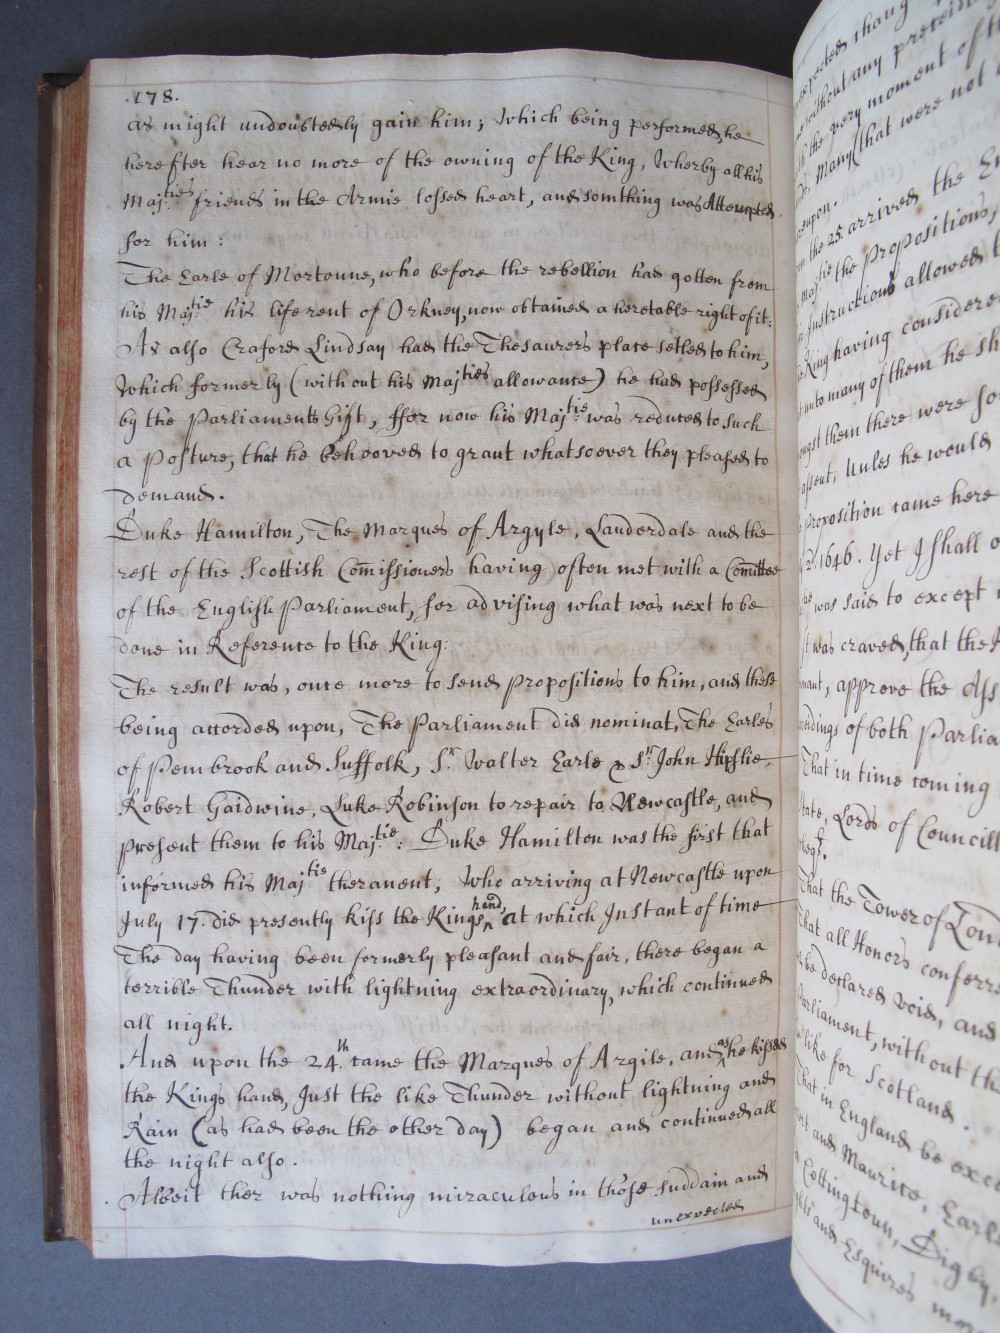 .178.
as might undoubtedly gain him; Which being performed, he
herefter hear no more of the owning of the King, Wherby all his
Maj:ties friends in the Armie lossed heart, and somthing was Attempted
for him:
The Earle of Mortoune, who before the rebellion had gotten from
his Maj:tie his liferent of Orkney, now obtained a heretable right of it:
As also Craford Lindsay had the Thesaurers place setled to him,
Which formerly (without his Majties allowance) he had possessed
by the Parliaments Gift, ffor now his Maj:tie was reduced to such
a Posture, that he behooved to grant whatsoever they pleased to
demand.
Duke Hamilton, The Marques of Argyle, Lauderdale and the
rest of the Scottish Comissioners having often met with a Comittee
of the English Parliament, for advising what was next to be
done in Reference to the King:
The result was, once more to send propositions to him, and these
being accorded upon, The Parliament did nominat, The Earles
of Pembrook and Suffolk, Sr. Walter Earle & Sr. John Hipslie
Robert Gaidwine, Luke Robinson to repair to Newcastle, and
present them to his Maj:tie: Duke Hamilton was the first that
informed his Majtie theranent; Who arriving at Newcastle upon
July 17. did presently kiss the Kings hand, at which Instant of time
The day having been formerly pleasant and fair, there began a
terrible Thunder with lightning extraordinary, which continued
all night.
And upon the 24.th came the Marques of Argile, and as he kissed
the Kings hand, Just the like Thunder without lightning and
Rain (as had been the other day) began and continued all
the night also.
Albeit ther was nothing miraculous in those suddain and
unexpected
expected chang
without any
the very moment of
Many that were not
upon.
the 25. arrived the
Maj:tie the Propositions,
Instructions allowed
King having considere
unto many of them he sh
them there were
assent, Unles he would
Proposition came here
2d. 1646. Yet I shall
was said to except
was craved, that the
approve the
of both Parlia
That in time coming
Lords of Councill
That the Tower of Lon
That all Honors conferre
be declared void, and
Parliament, without th
like for Scotland.
That in England be exce
and Maurice, Earl
Cottingtoun, Digby,
and Esquires mor